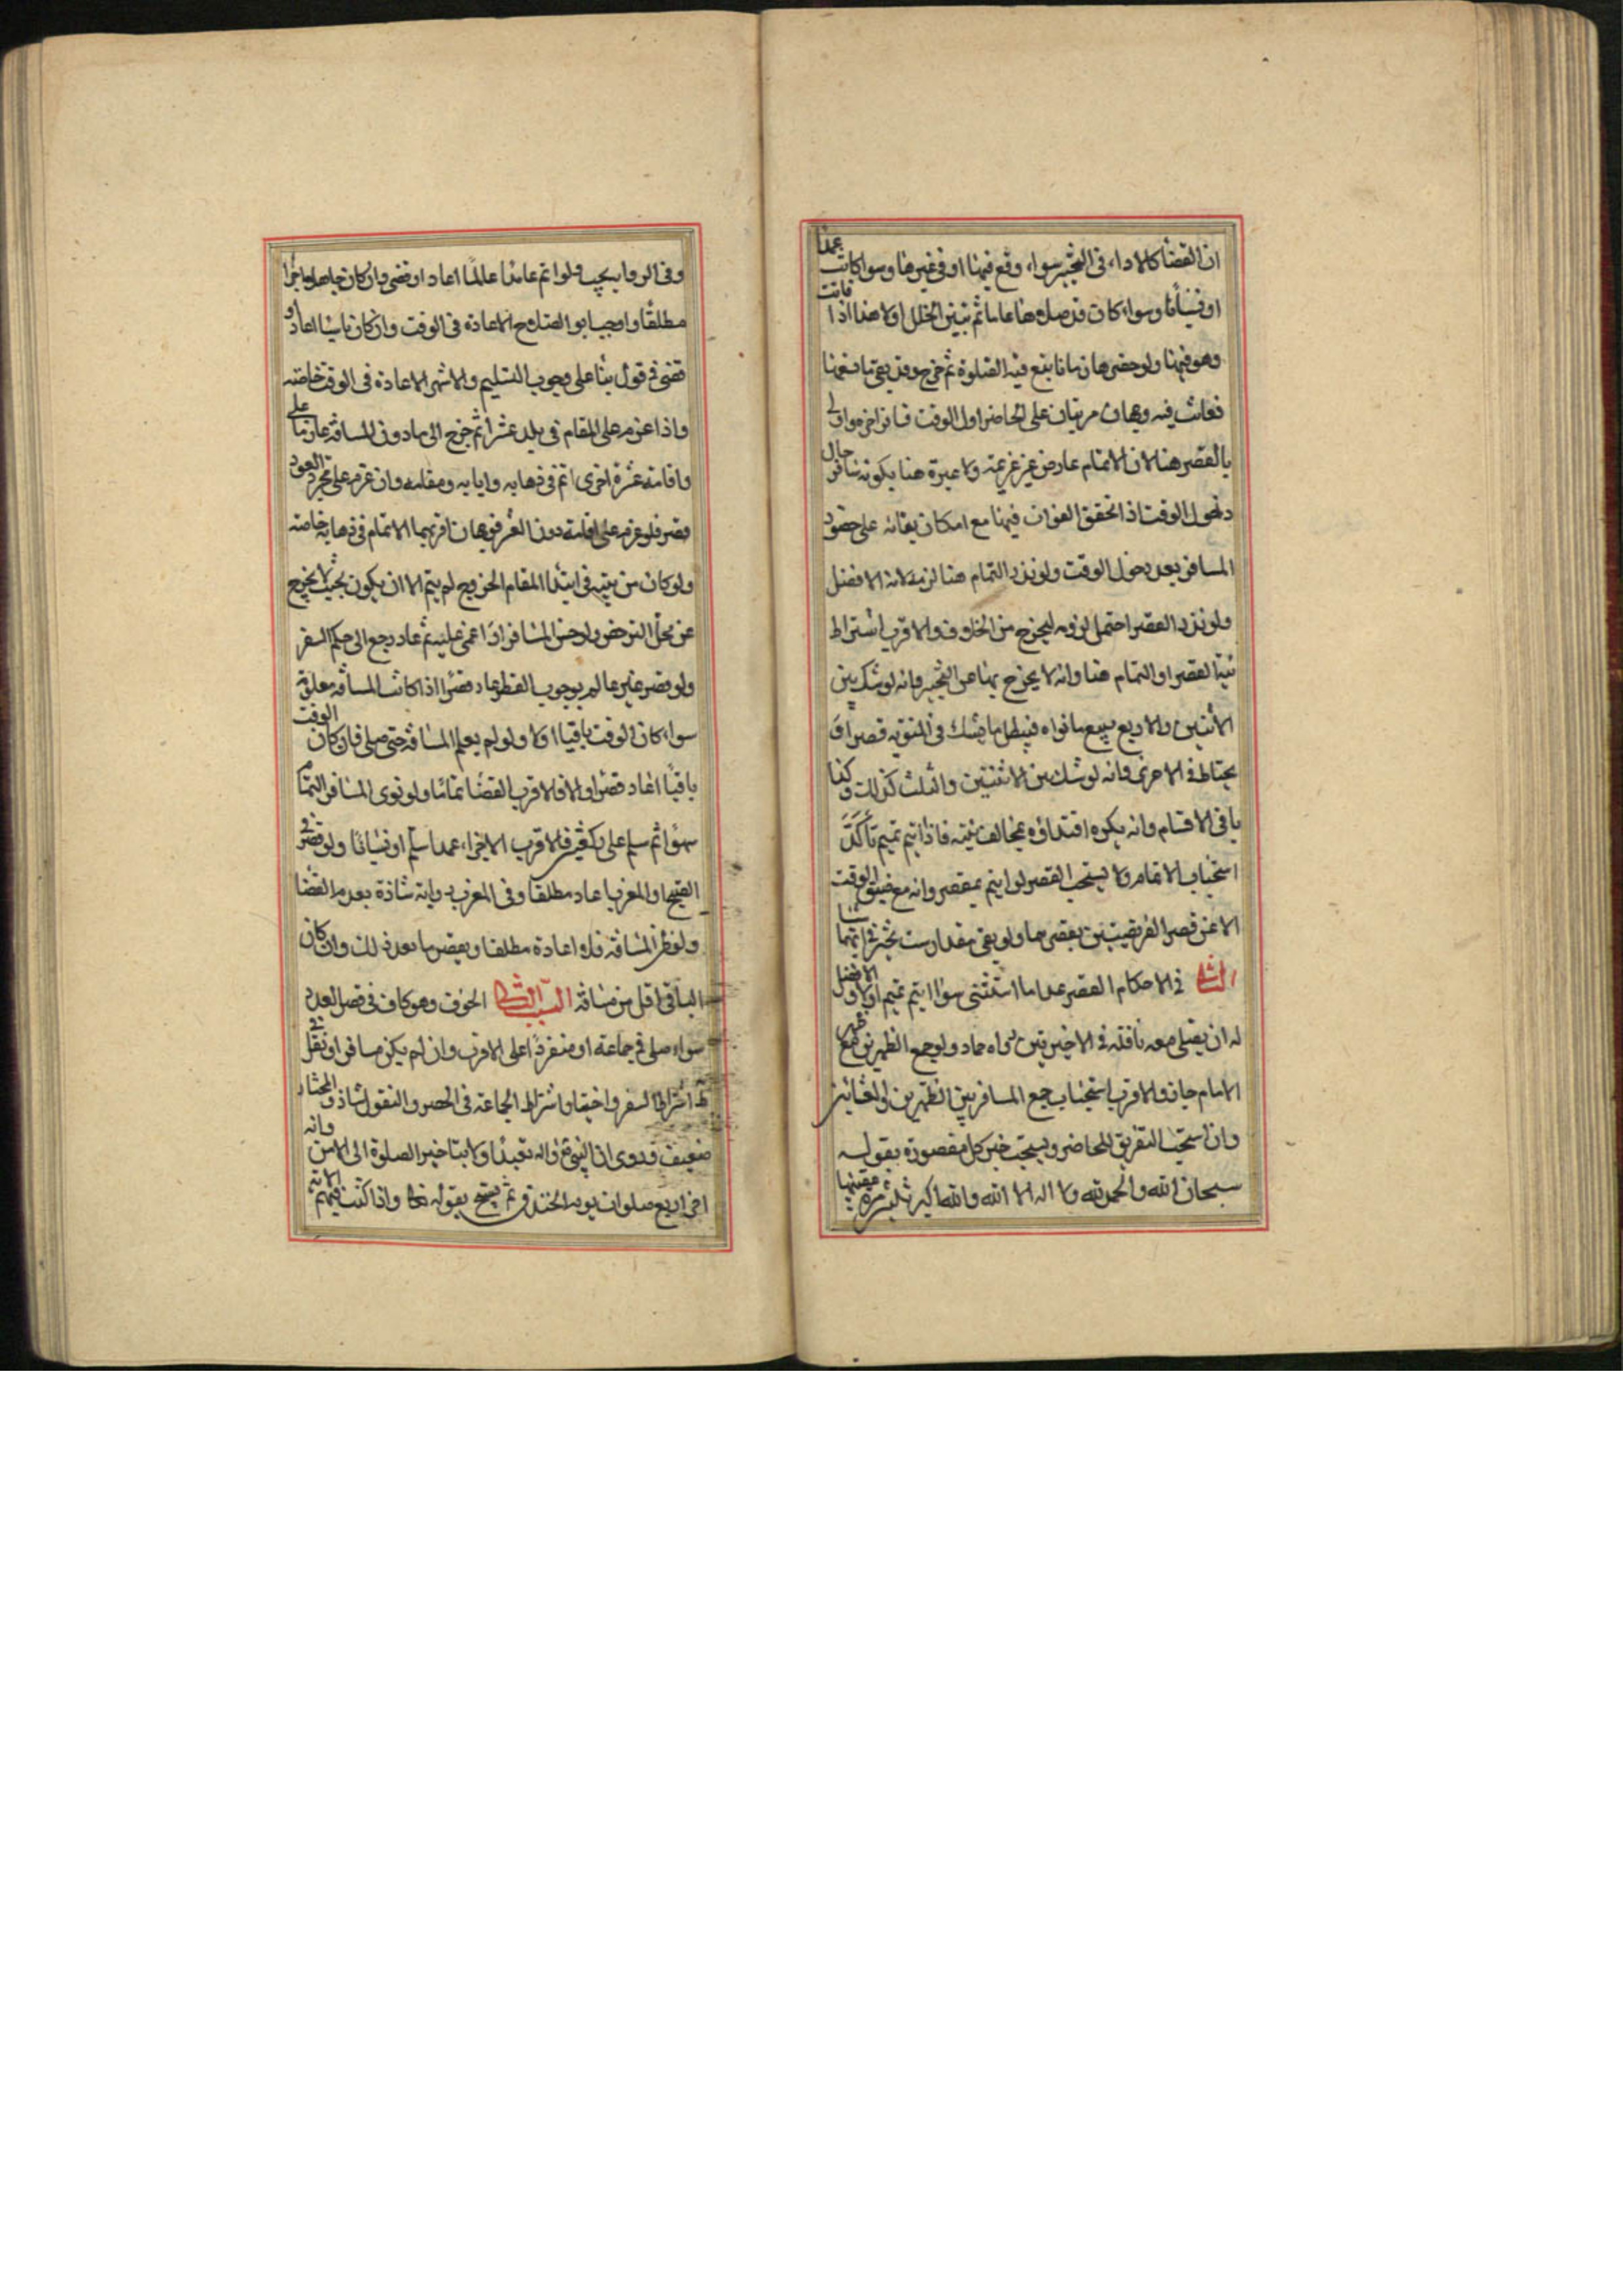 ان القضا كالاداء فى التخيير سواء وقع فيها او فى غيرها وسوا كانت عمدا
او نسيانا وسواء كان قد صلاها تماما ثم تبين الخلل او لا هذا اذا فاتت
وهو فيها ولو حضرها زمانا يتع فيه الصلوة ثم خرج وقد بقى
ففاتت فيه وجهان مرتبان على الحاضر اول الوقت فسافر اخره واولى
بالقصر هنا لان الاتمام عارض عزيمة ولا عبرة هنا بكونه مسافرا حال
دخول الوقت اذ تحقق الفوات فيها مع امكان بقائه على حضور
المسافر بعد دخول الوقت ولو نذر التمام هنا لزمه لانه الافضل
ولو نذر القصر احتمل لزومه ليخرج من الخلاف والاقرب اشتراط
نية القصر او التمام هنا وانه لا يخرج بها عن التخيير وانه لو شك بين
الاثنين والاربع تبع ما نواه فيبطل بالشك فى المنوية قصرا و
يحتاط فى الاخرى وانه لو شك بين الاثنتين والثلث كذلك وكذا
باقى الاقسام وانه يكره اقتداؤه بمخالف نيته فاذا ائتم بمتم تأكد
استحباب الاتمام ولا يستحب القصر لو ائتم بمقصر وانه مع ضيق الوقت
الا عن قصر الفريضتين يقصرهما ولو بقى مقدار ست تخير فى ايتهما شا
الثانى فى الاحكام القصر عدا ما استثنى سوا ائتم بمتم او لا والافضل
له ان يصلى معه نافلة فى الاخيرتين رواه حماد ولو جمع الظهرين مع ظهر
الامام جاز والاقرب استحباب جمع المسافر بين الظهرين والعشائين
وان استحب التفريق للحاضر ويستحب جبر كل مقصورة بقوله
سبحان الله والحمد لله ولا اله الا الله والله اكبر ثلثين مرة عقيبها
وفى الروايه يجب ولو اتم عامدا عالما اعاد او قضى وان كان جاهلا اجزا
مطلقا واوجب ابو الصلاح الاعادة فى الوقت وان كان ناسيا اعاد و
قضى فى قول بنا على وجوب التسليم والاشهر الاعادة فى الوقت خاصة
واذا عزم على المقام فى بلد عشرا ثم خرج الى ما دون المسافة عازما على
واقامة عشرة اخرى اتم فى ذهابه وايابه ومقامه وان عزم على مجرد العود
قصر فلو عزم على اقامة دون العشر فوجهان اقربهما الاتمام فى ذهابه خاصة
ولو كان من نيته فى ابتدا المقام الخروج لم يتم الا ان يكون بحيث لا يخرج
عن محل الترخص ولو جن المسافر او اغمى عليه ثم عاد رجع الى حكم السفر
ولو قصر غير عالم بوجوب القصر اعاد قصرا اذا كانت المسافة معلومة
سوا كان الوقت باقيا او لا ولو لم يعلم المسافة حتى صلى فان كان الوقت
باقيا اعاد قصرا والا فالاقرب القضا تماما ولو نوى المسافر التمام
سهوا ثم سلم على ركعتين فالاقرب الاجزاء عمدا سلم او نسيانا ولو قصر فى
الصبح او المغرب اعاد مطلقا وفى المغرب رواية شاذة بعدم القضا
ولو ظن المسافة فلا اعادة مطلقا ويقصر ما بعد ذلك وان كان
الباقى اقل من مسافة السبب الثانى الخوف وهو كاف فى قصر العدد
سواء صلى فى جماعة او منفردا على الاقرب وان لم يكن مسافرا ونقل فى
ط اشتراط السفر واختياره اشتراط الجماعة فى الحصر والنقول شاذ والمختار
ضعيف وروى ان النبى واله تعبدا ولا بتاخير الصلوة الى الامن وانه
اخر اربع صلوات يوم الخندق ثم نسخ بقوله تعا واذا كنت فيهم الاية